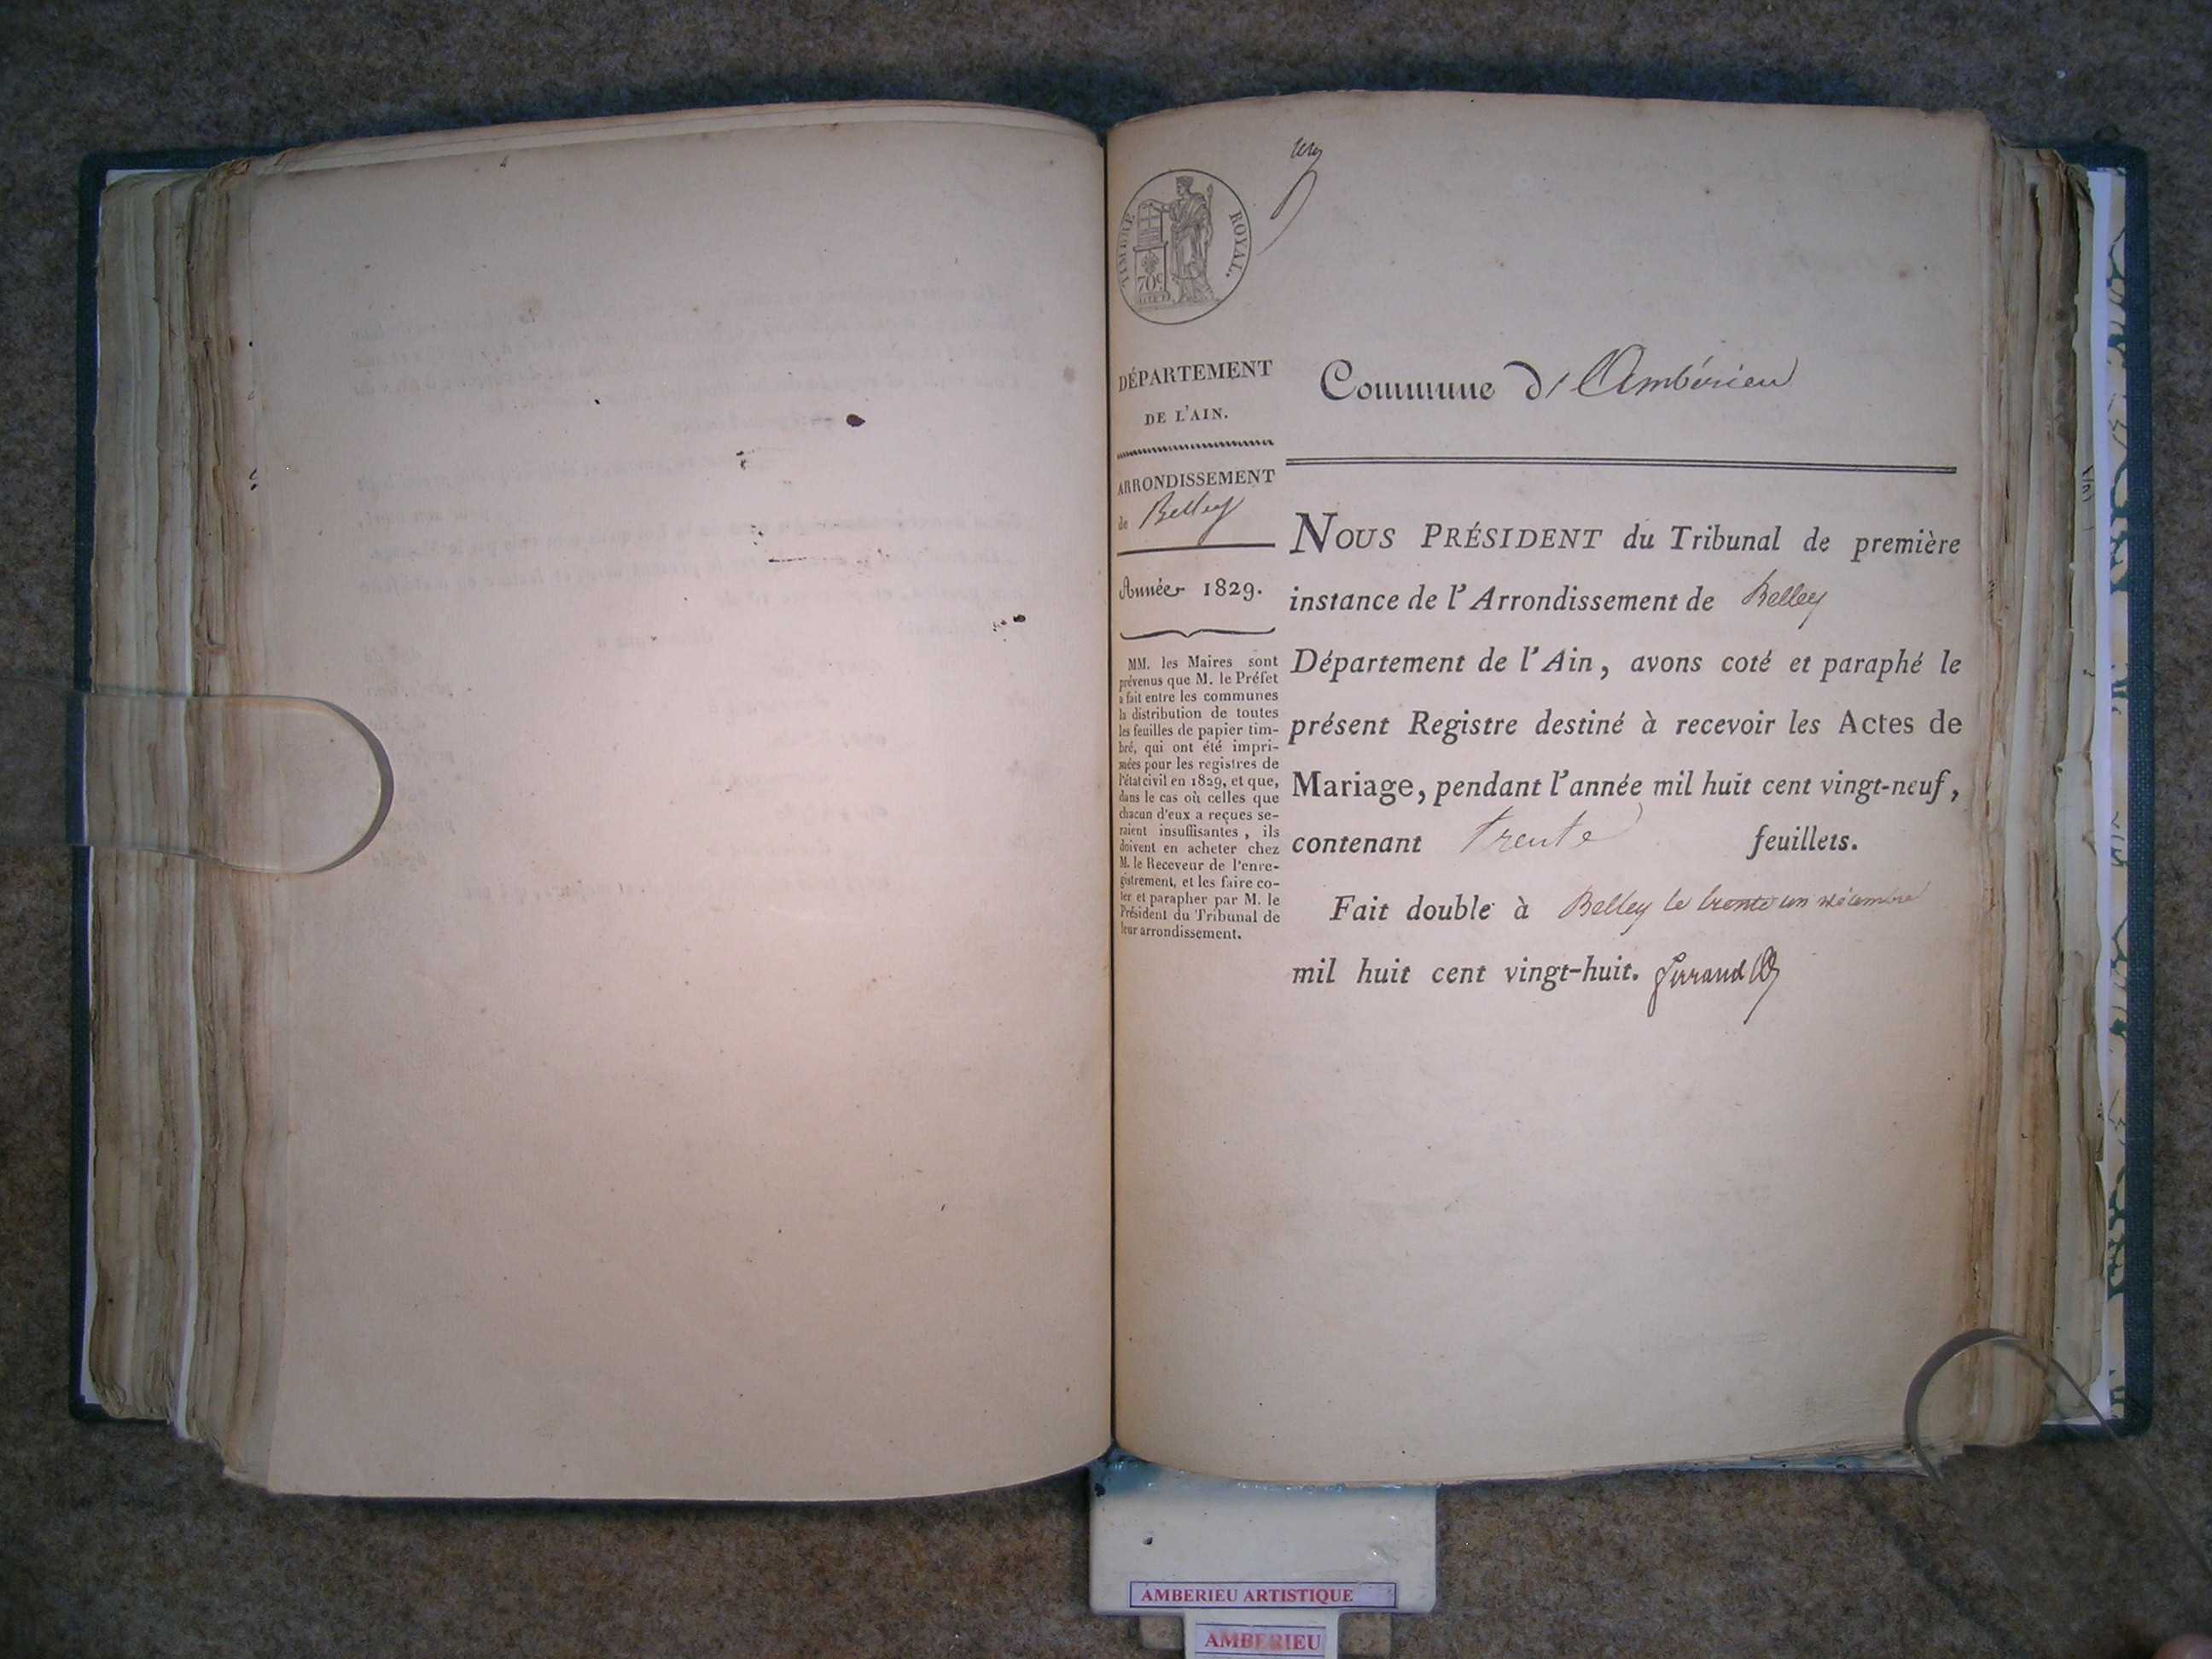 TIMBRE ROYAL.
70c
DÉPARTEMENT
DE L'AIN.
ARRONDISSEMENT
de Belley
Année 1829.
MM. les Maires sont
prévenus que M. le Préfet
a fait entre les communes
la distribution de toutes
les feuilles de papier tim-
bré, qui ont été impri-
mées pour les registres de
l'état civil en 1829, et que,
dans le cas où celles que
chacun d'eux a reçues se-
raient insuffisantes, ils
doivent en acheter chez
M. le Receveur de l'enre-
gistrement, et les faire co-
ter et parapher par M. le
Président du Tribunal de
leur arrondissement.
Commune d' Ambérieu
NOUS PRÉSIDENT du Tribunal de première
instance de l'Arrondissement de Belley
Département de l'Ain, avons coté et paraphé le
présent Registre destiné à recevoir les Actes de
Mariage, pendant l'année mil huit cent vingt-neuf,
contenant trente feuillets.
Fait double à Belley le trente un décembre
mil huit cent vingt-huit.
AMBERIEU ARTISTIQUE
AMBERIEU